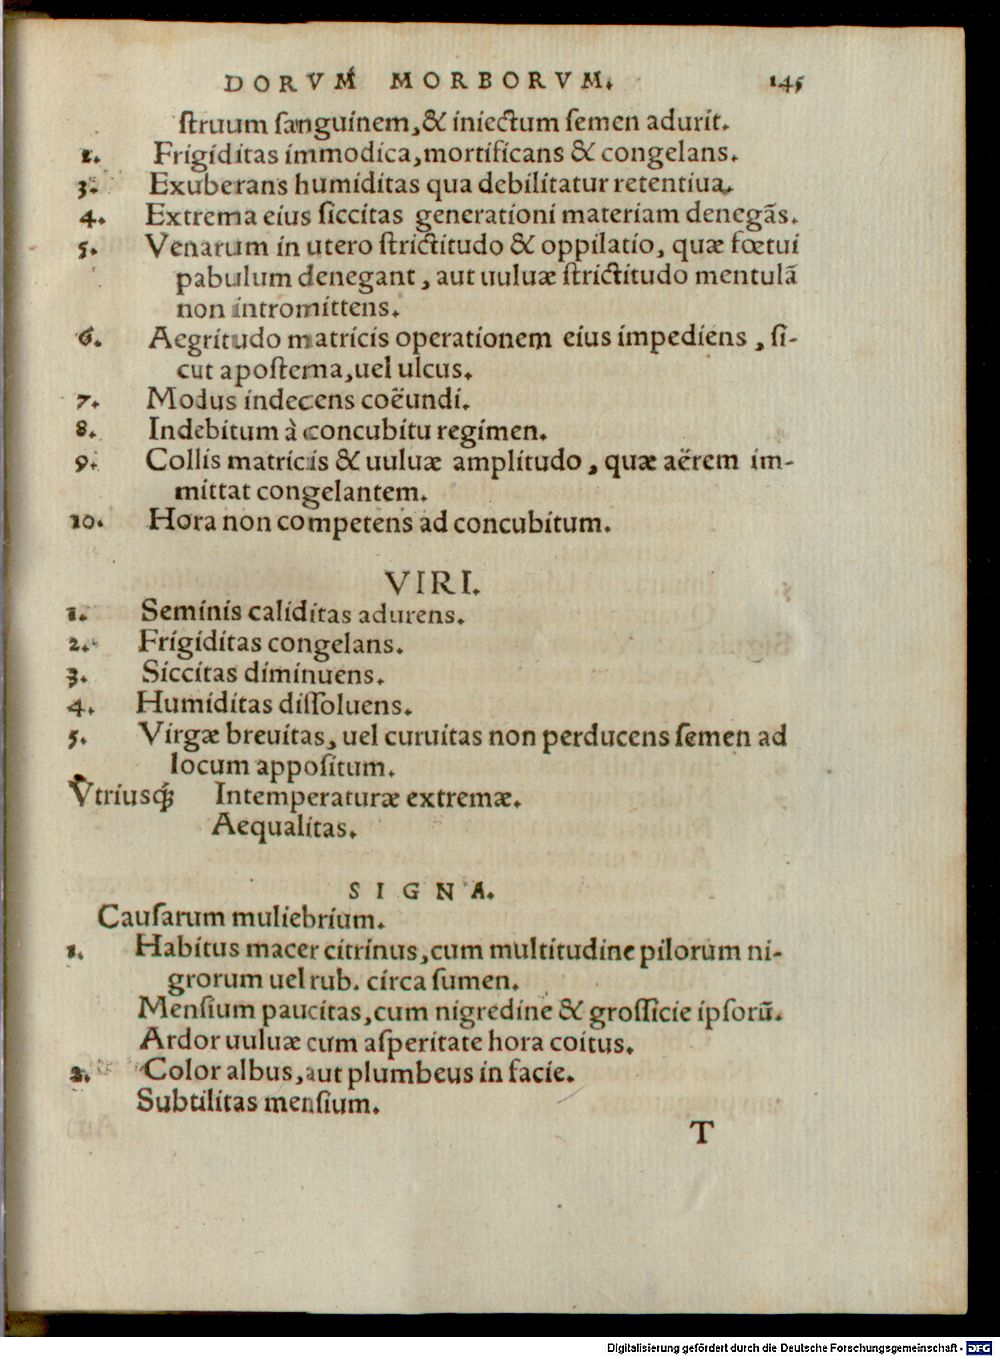 DORVM MORBORVM. 145
ſtruum ſanguinem,& iniectum ſemen adurit.
2. Frigiditas immodica,mortificans & congelans.
3. Exuberans humiditas qua debilitatur retentiua.
4. Extrema eius ſiccitas generationi materiam denegãs.
5. Venarum in utero ſtrictitudo & oppilatio, quæ fœtui
pabulum denegant, aut uuluæ ſtrictitudo mentulã
non intromittens.
6. Aegritudo matricis operationem eius impediens, ſi-
cut apoſtema,uel ulcus.
7. Modus indecens coëundi.
8. Indebitum à concubitu regimen.
9. Collis matricis & uuluæ amplitudo, quæ aërem im-
mittat congelantem.
10. Hora non competens ad concubitum.
VIRI.
1. Seminis caliditas adurens.
2. Frigiditas congelans.
3. Siccitas diminuens.
4. Humiditas diſſoluens.
5. Virgæ breuitas, uel curuitas non perducens ſemen ad
locum appoſitum.
Vtriusq; Intemperaturæ extremæ.
Aequalitas.
SIGNA.
Cauſarum muliebrium.
1. Habitus macer citrinus,cum multitudine pilorum ni-
grorum uel rub. circa ſumen.
Menſium paucitas,cum nigredine & groſſicie ipſorũ.
Ardor uuluæ cum aſperitate hora coitus.
2. Color albus,aut plumbeus in facie.
Subtilitas menſium.
T
Digitalisierung gefördert durch die Deutsche Forschungsgemeinschaft - DFG